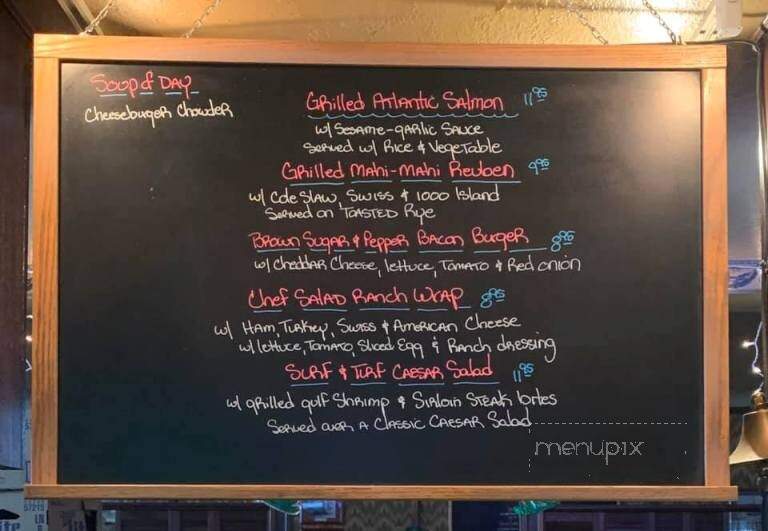 Soup of Day
Cheeseburger Chowder
Grilled Atlantic Salmon 11.95
w/ Sesame-garlic Sauce
Served w/ Rice & Vegetable
Grilled Mahi-Mahi Reuben 9.95
w/ Cole Slaw, Swiss & 1000 Island
Served on Toasted Rye
Brown Sugar & Pepper Bacon Burger 8.95
w/ Cheddar Cheese, lettuce, Tomato & Red onion
Chef Salad Ranch Wrap 8.95
w/ Ham, Turkey, Swiss & American Cheese
w/ lettuce, Tomato, Sliced Egg & Ranch dressing
Surf & Turf Caesar Salad 11.95
w/ grilled gulf Shrimp & Sirloin Steak bites
Served over A Classic Caesar Salad
menupix